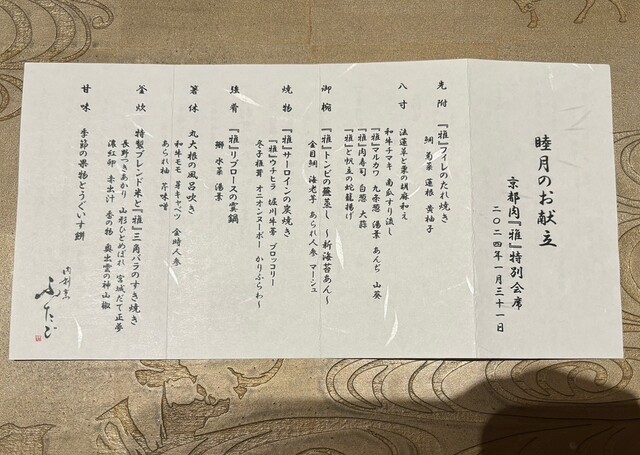 睦月のお献立
京都肉『雅』特別会席
二〇二四年一月三十一日
先附
『雅』フィレのたれ焼き
蕪 菊菜 蓮根 黄柚子
八寸
法蓮草と栗の胡麻和え
和牛チマキ 南瓜すり流し
『雅』マルカワ 九条葱 湯葉 あんぢ 山葵
『雅』肉寿司 白葱 大蒜
『雅』と帆立の蛇籠揚げ
御椀
『雅』トンビの蕪蒸し 〜新海苔あん〜
金目鯛 海老芋 あられ人参 マーシュ
焼物
『雅』サーロインの炭焼き
『雅』ウチヒラ 堀川牛蒡 ブロッコリー
冬子椎茸 オニオンヌーボー かりふらわ〜
強肴
『雅』リブロースの雲鍋
水菜 湯葉
箸休
丸大根の風呂吹き
和牛モモ 芽キャベツ 金時人参
あられ柚 芹味噌
釜炊
特製ブレンド米と『雅』三角バラのすき焼き
長野つきあかり 山形ひとめぼれ 宮城だて正夢
濃紅卵 赤出汁 香の物 奥出雲の神山椒
甘味
季節の果物とうぐいす餅
肉割烹
ふたご